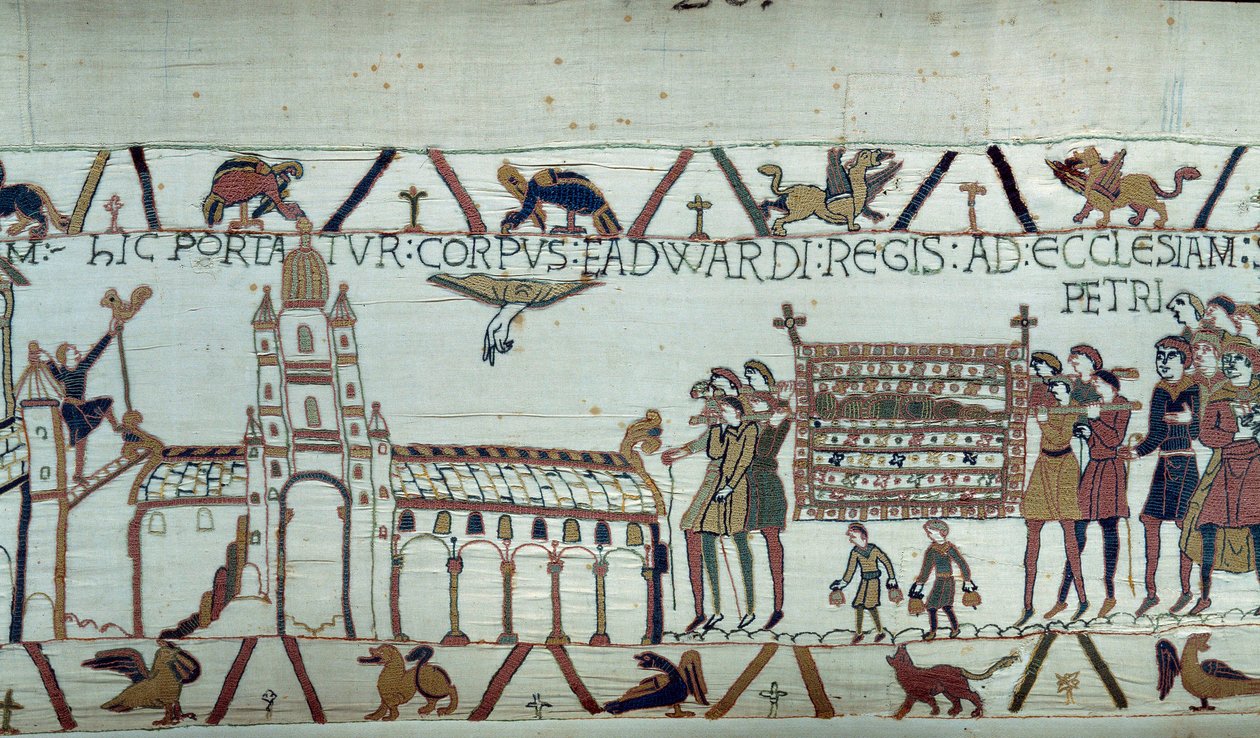 M:- hIC PORTATVR:CORPVS:EADWARDI:REGIS:AD:ECCLESIAM:S
PETRI